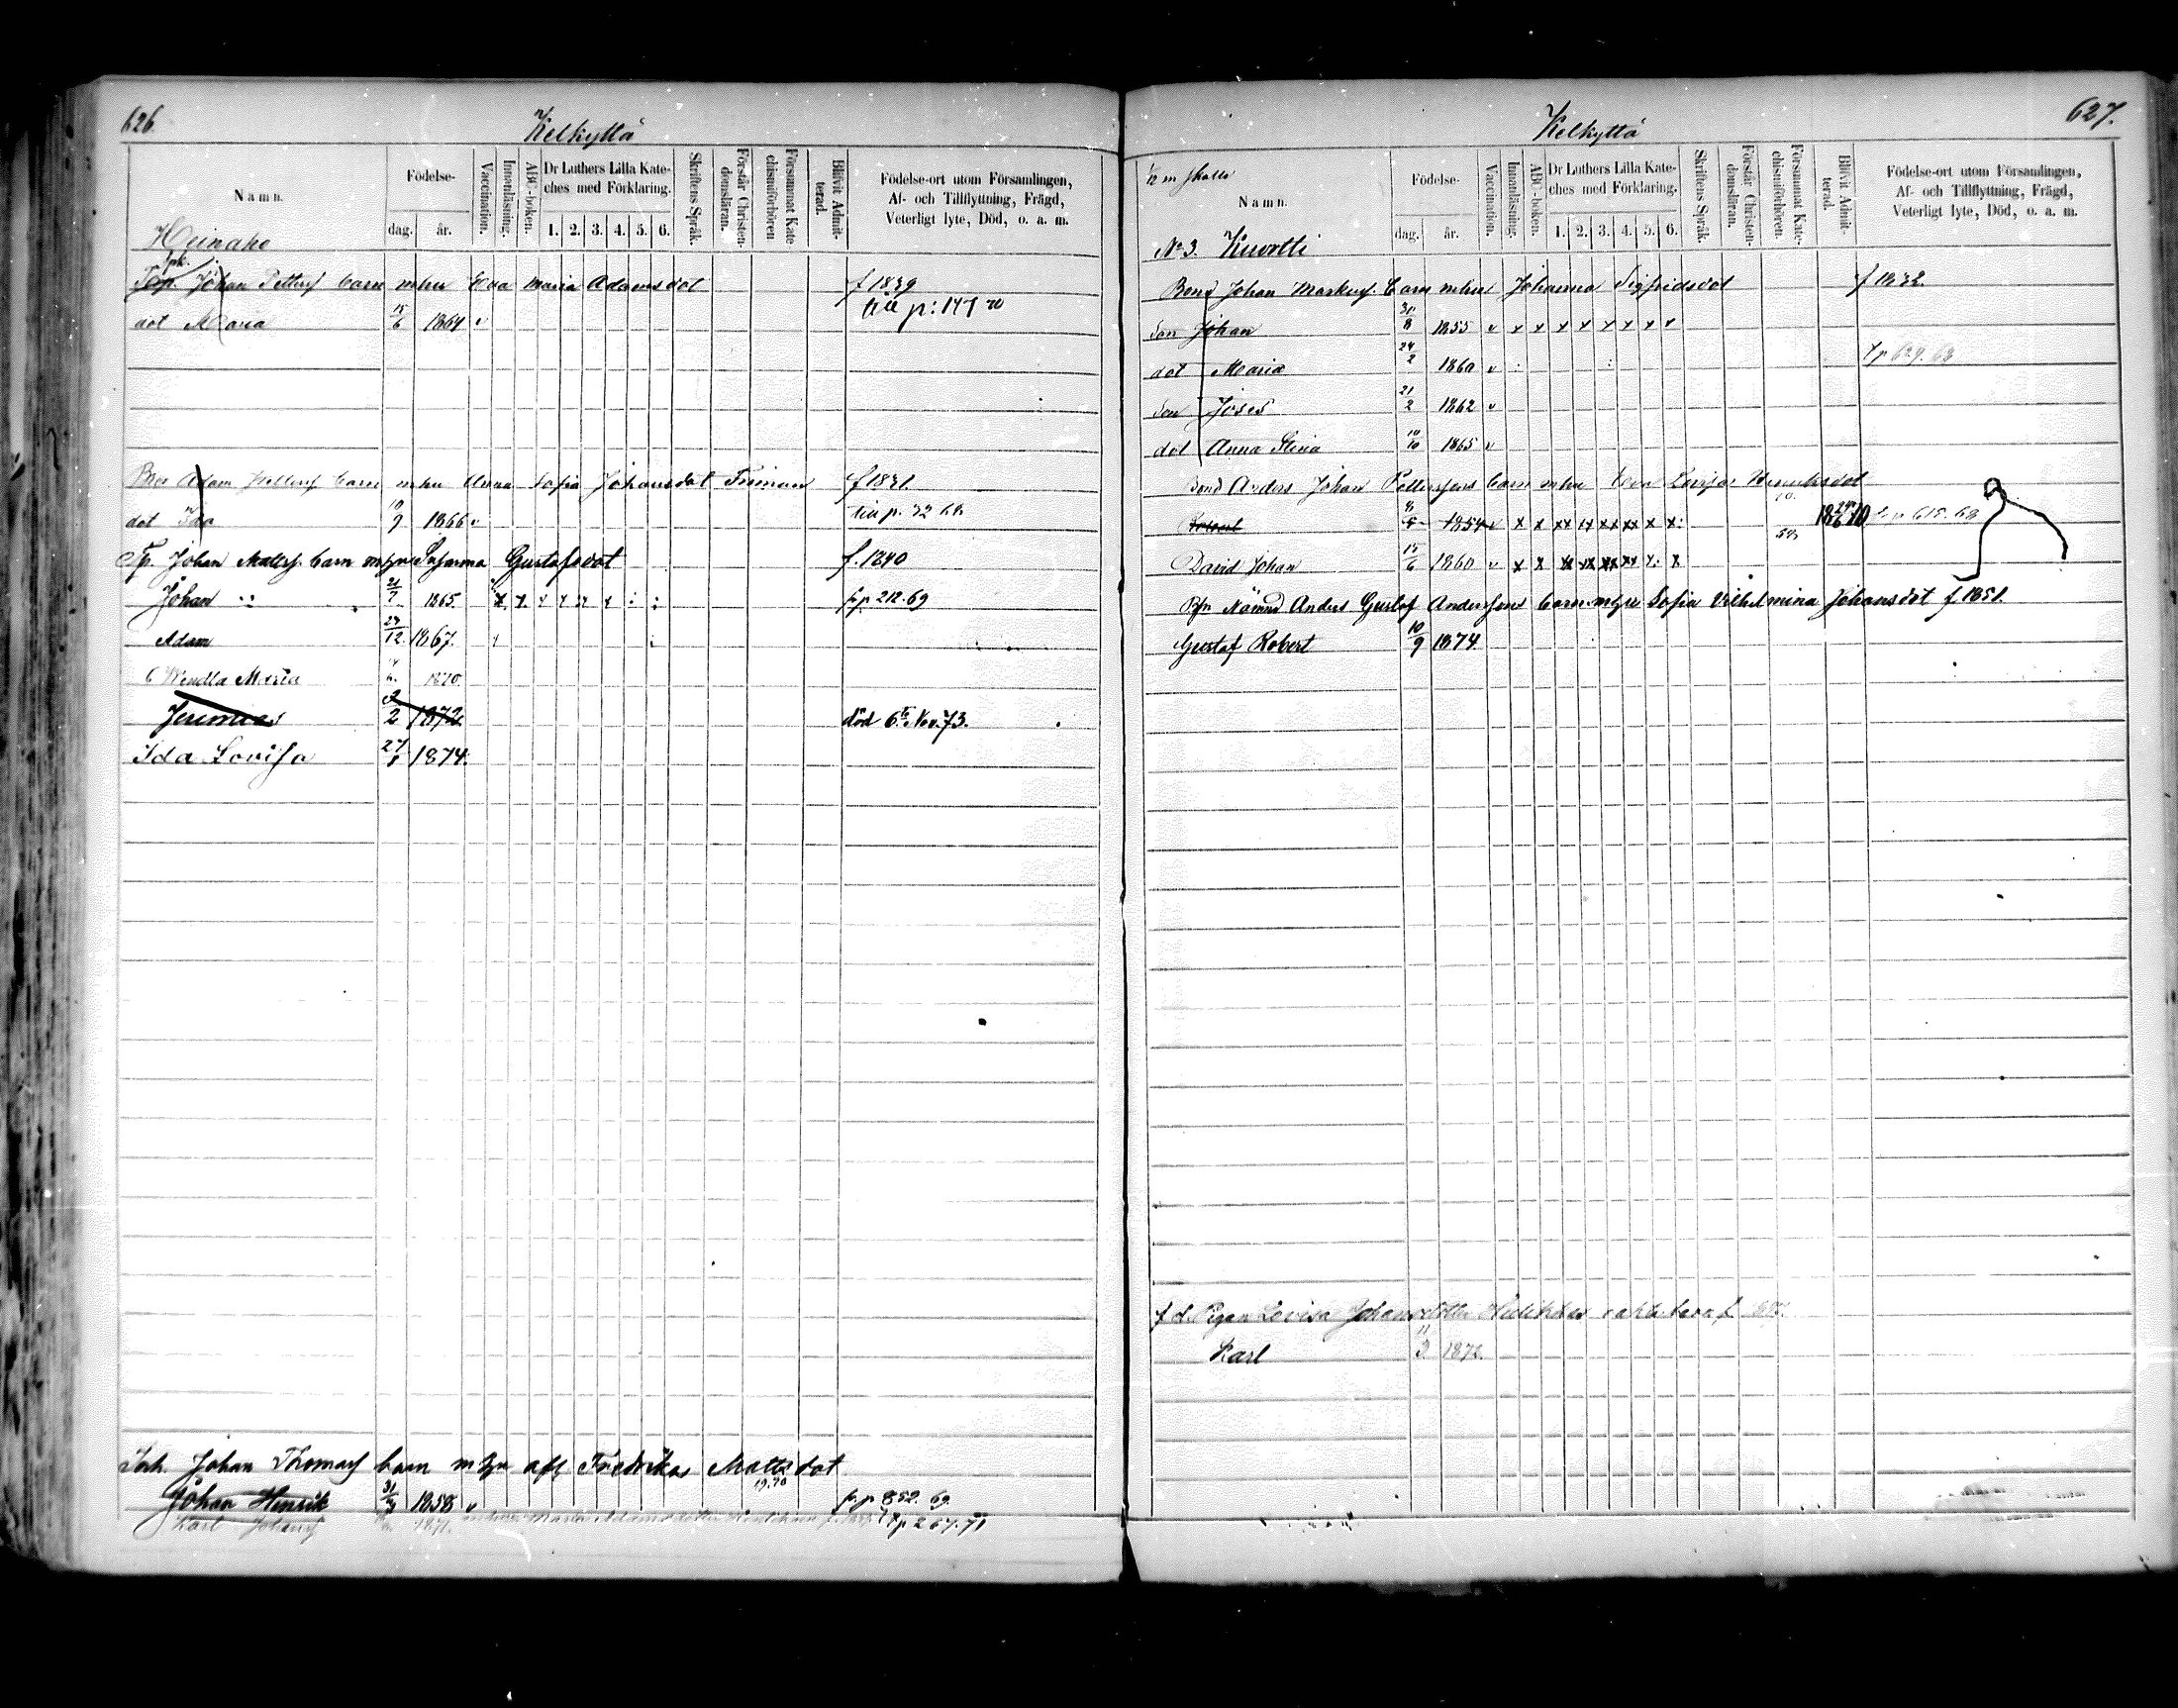 626.
Kelkyttä
Namn.
Födelse-
dag.
år.
Vaccination.
Innanläsning.
ABC-boken.
Dr Luthers Lilla Kateches med Förklaring.
1. 2. 3. 4. 5. 6.
Skriftens Språk.
Förstår Christendomsläran.
Försummat Katechismiförhören
Blifvit Admitterad.
Födelse-ort utom Församlingen,
Af- och Tillflyttning, Frägd,
Veterligt lyte, Död, o. a. m.
Heinaho
Johan Petters barn m hu Eva Maria Adamsdot f 1839
dot Maria 15/6 1864 v till p: 147 70
Adam barn m hu Anna Sofia Johansdot f 1831.
dot Ida 10/9 1866 v
Tp. Johan Matts. barn m hu Susanna Gustafsdot f. 1840
Johan 21/7 1865. fr p 212. 69
Adam 12. 1867.
Wendla Maria 1870.
Jeremias 2/2 1872. död 6te Nov. 73.
Ida Lovisa 27/1 1874.
Inh. Johan Thomas barn m hu afl Fredrika Mattsdot
Johan Henrik 31/3 1858 v fr. p 852. 69.
Karl Johans 1871. p 267. 71
627.
Kelkyttä
Namn.
Födelse-
dag.
år.
Vaccination.
Innanläsning.
ABC-boken.
Dr Luthers Lilla Kateches med Förklaring.
1. 2. 3. 4. 5. 6.
Skriftens Språk.
Förstår Christendomsläran.
Försummat Katechismiförhören.
Blifvit Admitterad.
Födelse-ort utom Församlingen,
Af- och Tillflyttning, Frägd,
Veterligt lyte, Död, o. a. m.
No 3. Kuortti
Bond Johan Markus. barn m hu Johanna Sigfridsdot f 1832.
Son Johan 31/8 1855 v x x x x x x x x
dot Maria 24/2 1860 v p 629. 68
Son Josef 21/2 1862 v
dot Anna Stina 10/10 1865 v
Bond Anders Johan Petterssons barn m hu Eva Lovisa Henriksdot
1854 v 18 24/6 70 p 615. 68
David Johan 15/6 1860 v
Nämnd Anders Gustaf Anderssons barn m hu Sofia Vilhelmina Johansdot f. 1851.
Gustaf Robert 10/9 1874.
f d. Pigan Lovisa Johansdotter
Karl 11/3 1872.